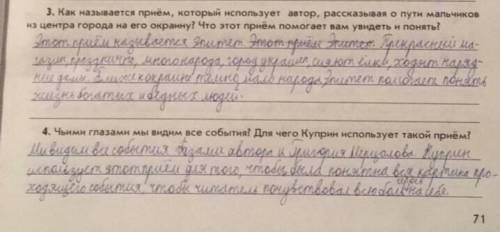 3. Как называется приём, который использует автор, рассказывая о пути мальчиков
из центра города на его окраину? Что этот приём помогает вам увидеть и понять?
Этот приём называется Эпитет. Этот приём Эпитет. Прекрасный ма-
газин, празднично, много народа, город украшен, сияют елки, ходит наряд-
ные дамы. Ближе к окраине темно, мало народа. Эпитет помогает понять
жизнь богатых и бедных людей.
4. Чьими глазами мы видим все события? Для чего Куприн использует такой приём?
Мы видем все события глазами автора и Григория Мерцалова. Куприн
использует этот приём для того, чтобы была понятна вся картина про-
ходящего события, чтобы читатель почувствовал всю боль героя на себе.
71